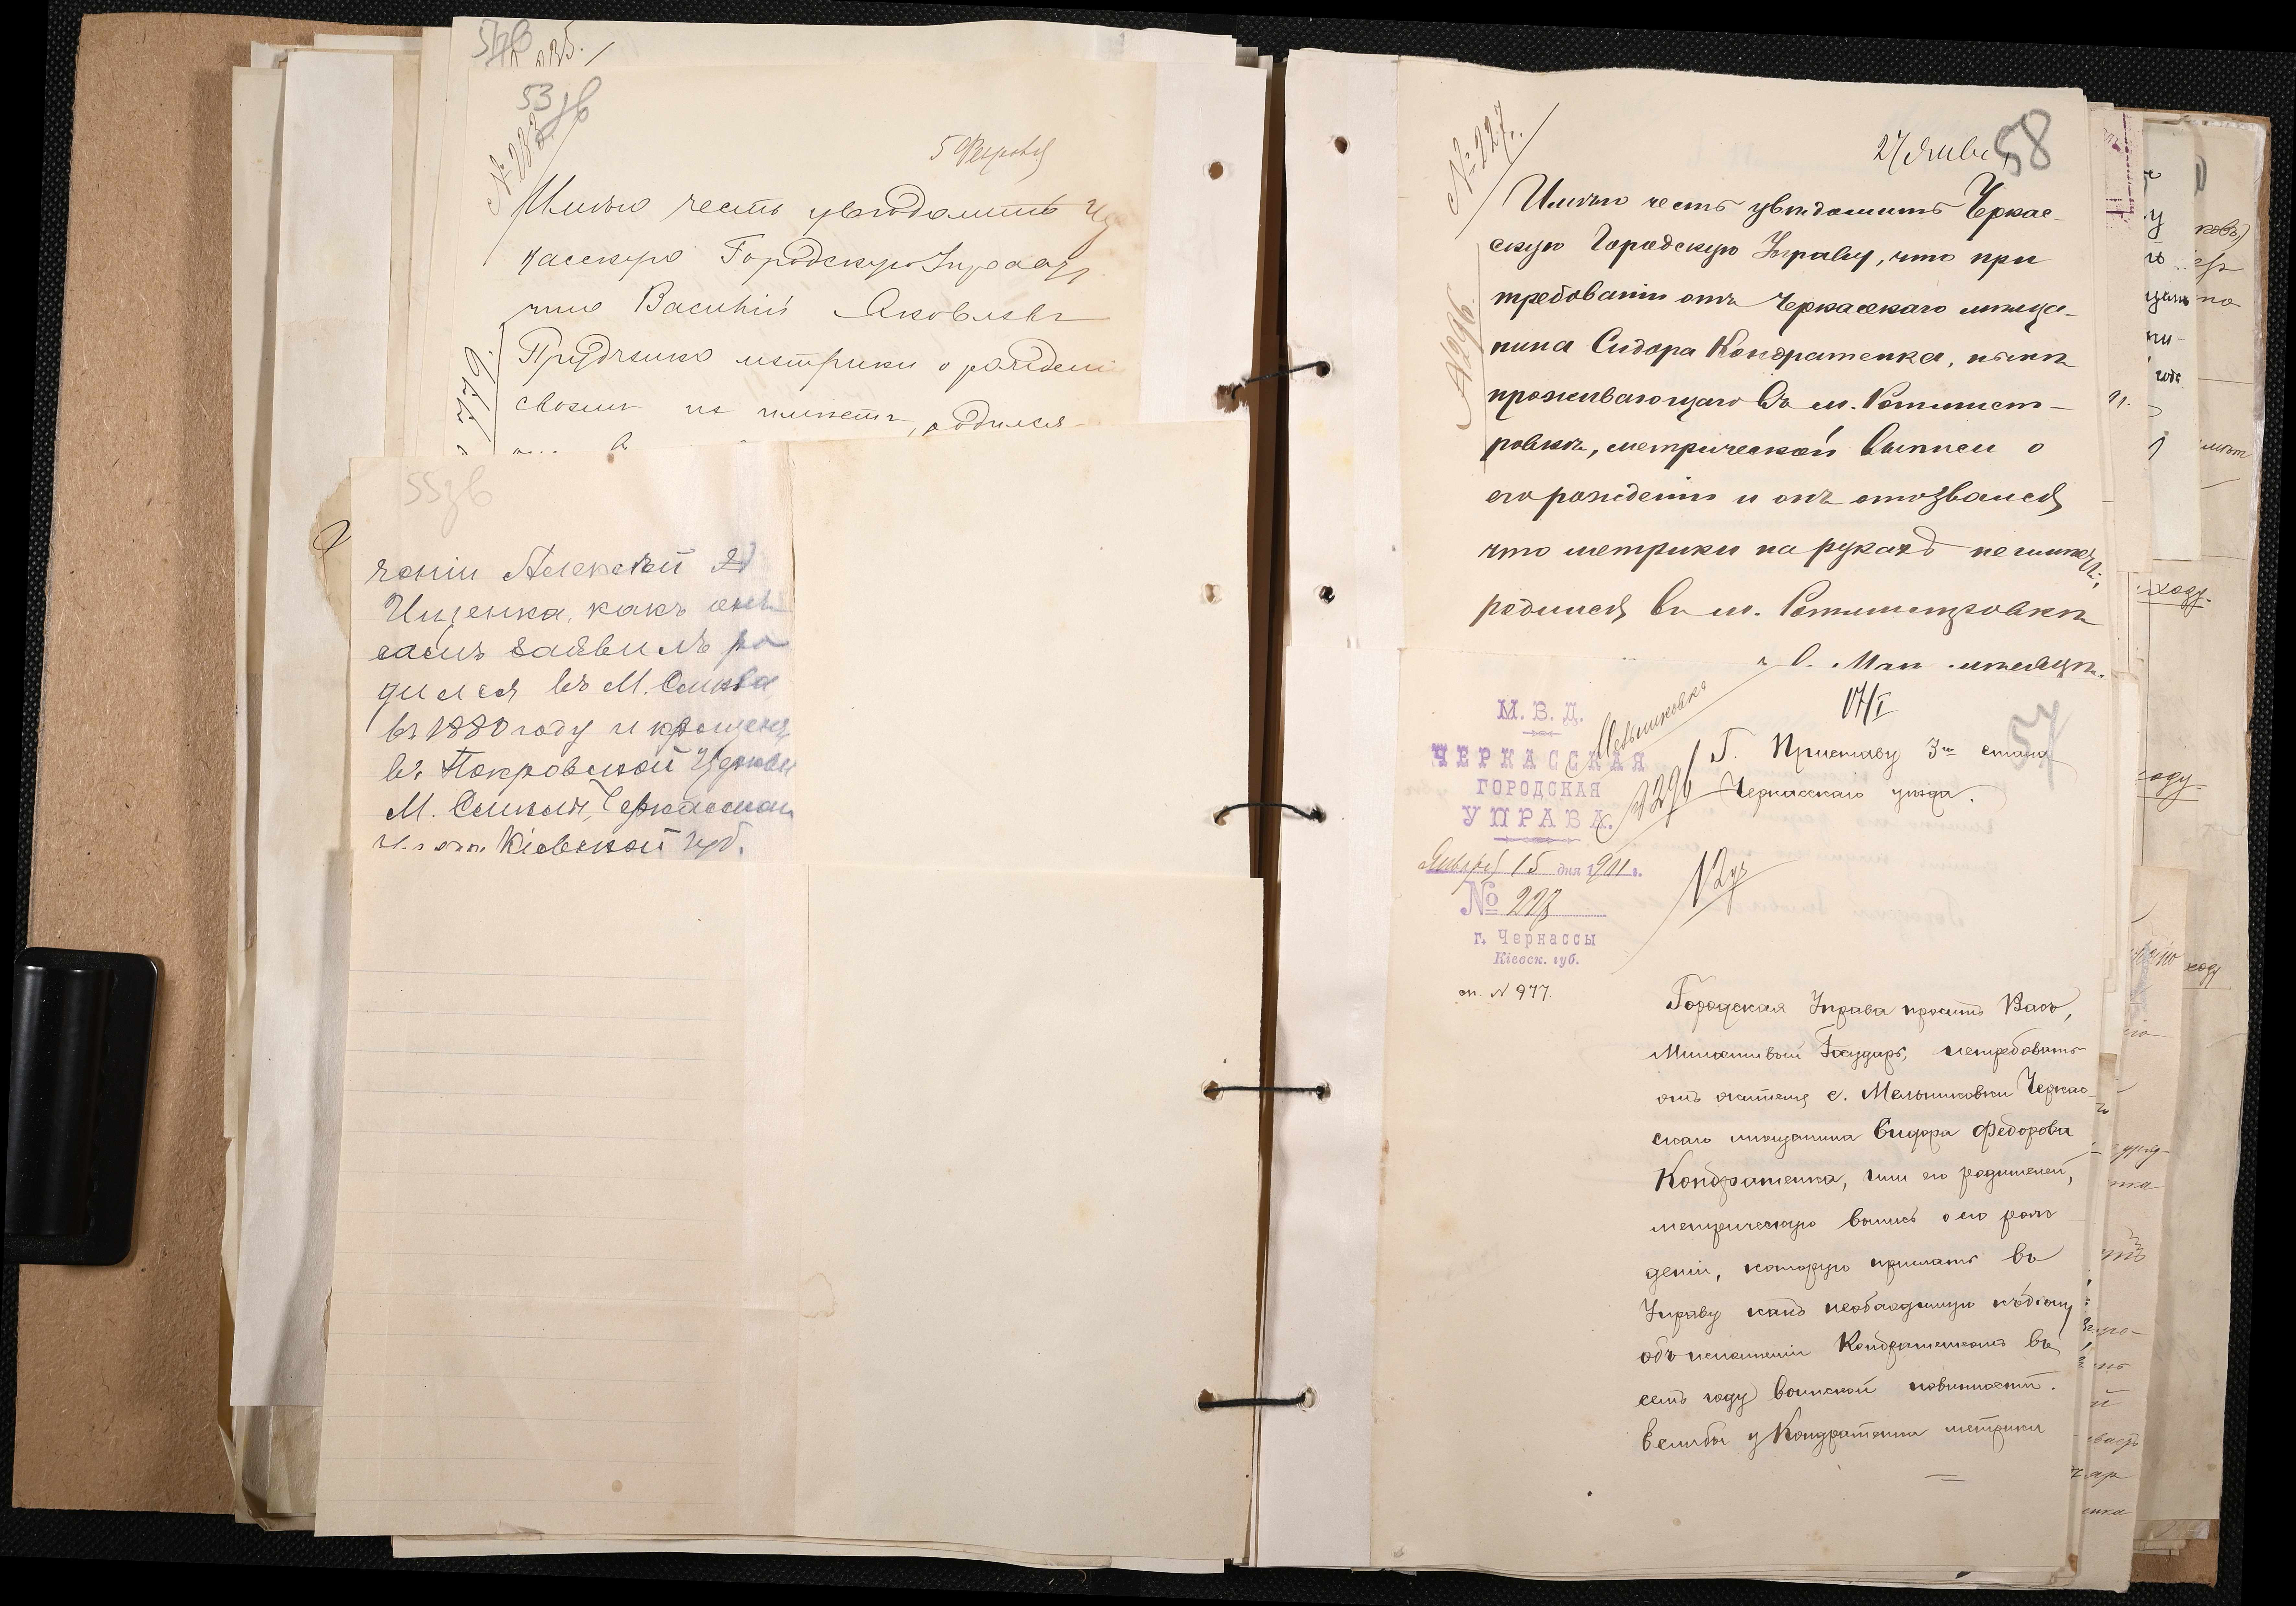 53 зв
5 Февраля
Имѣю честь увѣдомить Чер
касскую Городскую Управу,
что Василій Яковлевъ
Прудченко метрики о рожденіи
своемъ не имѣетъ, родился
779.
55 зв
ченіи Алексѣй
Ищенка, какъ онъ
самъ заявилъ ро
дился въ М. Смѣла
въ 1880 году и крещенъ
въ Покровской Церкви
М. Смѣлы, Черкасскаго
Кіевской губ.
№ 227.
27 Янва
58
Имѣю честь увѣдомить Черкас-
скую Городскую Управу, что при
требованіи отъ Черкасскаго мѣща-
нина Сидора Кондратенка, нынѣ
проживающаго въ м. Ротмист-
ровкѣ, метрической выписи о
его рожденіи и онъ отозвался
что метрики на рукахъ не имѣетъ,
родился въ м. Ротмистровкѣ
57
17/I
М. В. Д.
ЧЕРКАССКАЯ
ГОРОДСКАЯ
УПРАВА.
Января 15 дня 1911 г.
№ 227
г. Черкассы
Кіевск. губ.
сп. № 977.
Мельниковка
Г. Приставу 3го стана
Черкасскаго уѣзда.
Городская Управа проситъ Васъ,
Милостивый Государь, истребовать
отъ жителя с. Мельниковки Черкас-
скаго мѣщанина Сидора Федорова
Кондратенка, или его родителей,
метрическую выпись о его рож-
деніи, которую прислать въ
Управу какъ необходимую къ дѣлу
объ исполненіи Кондратенкомъ въ
семъ году воинской повинности.
Если бы у Кондратенка метрики